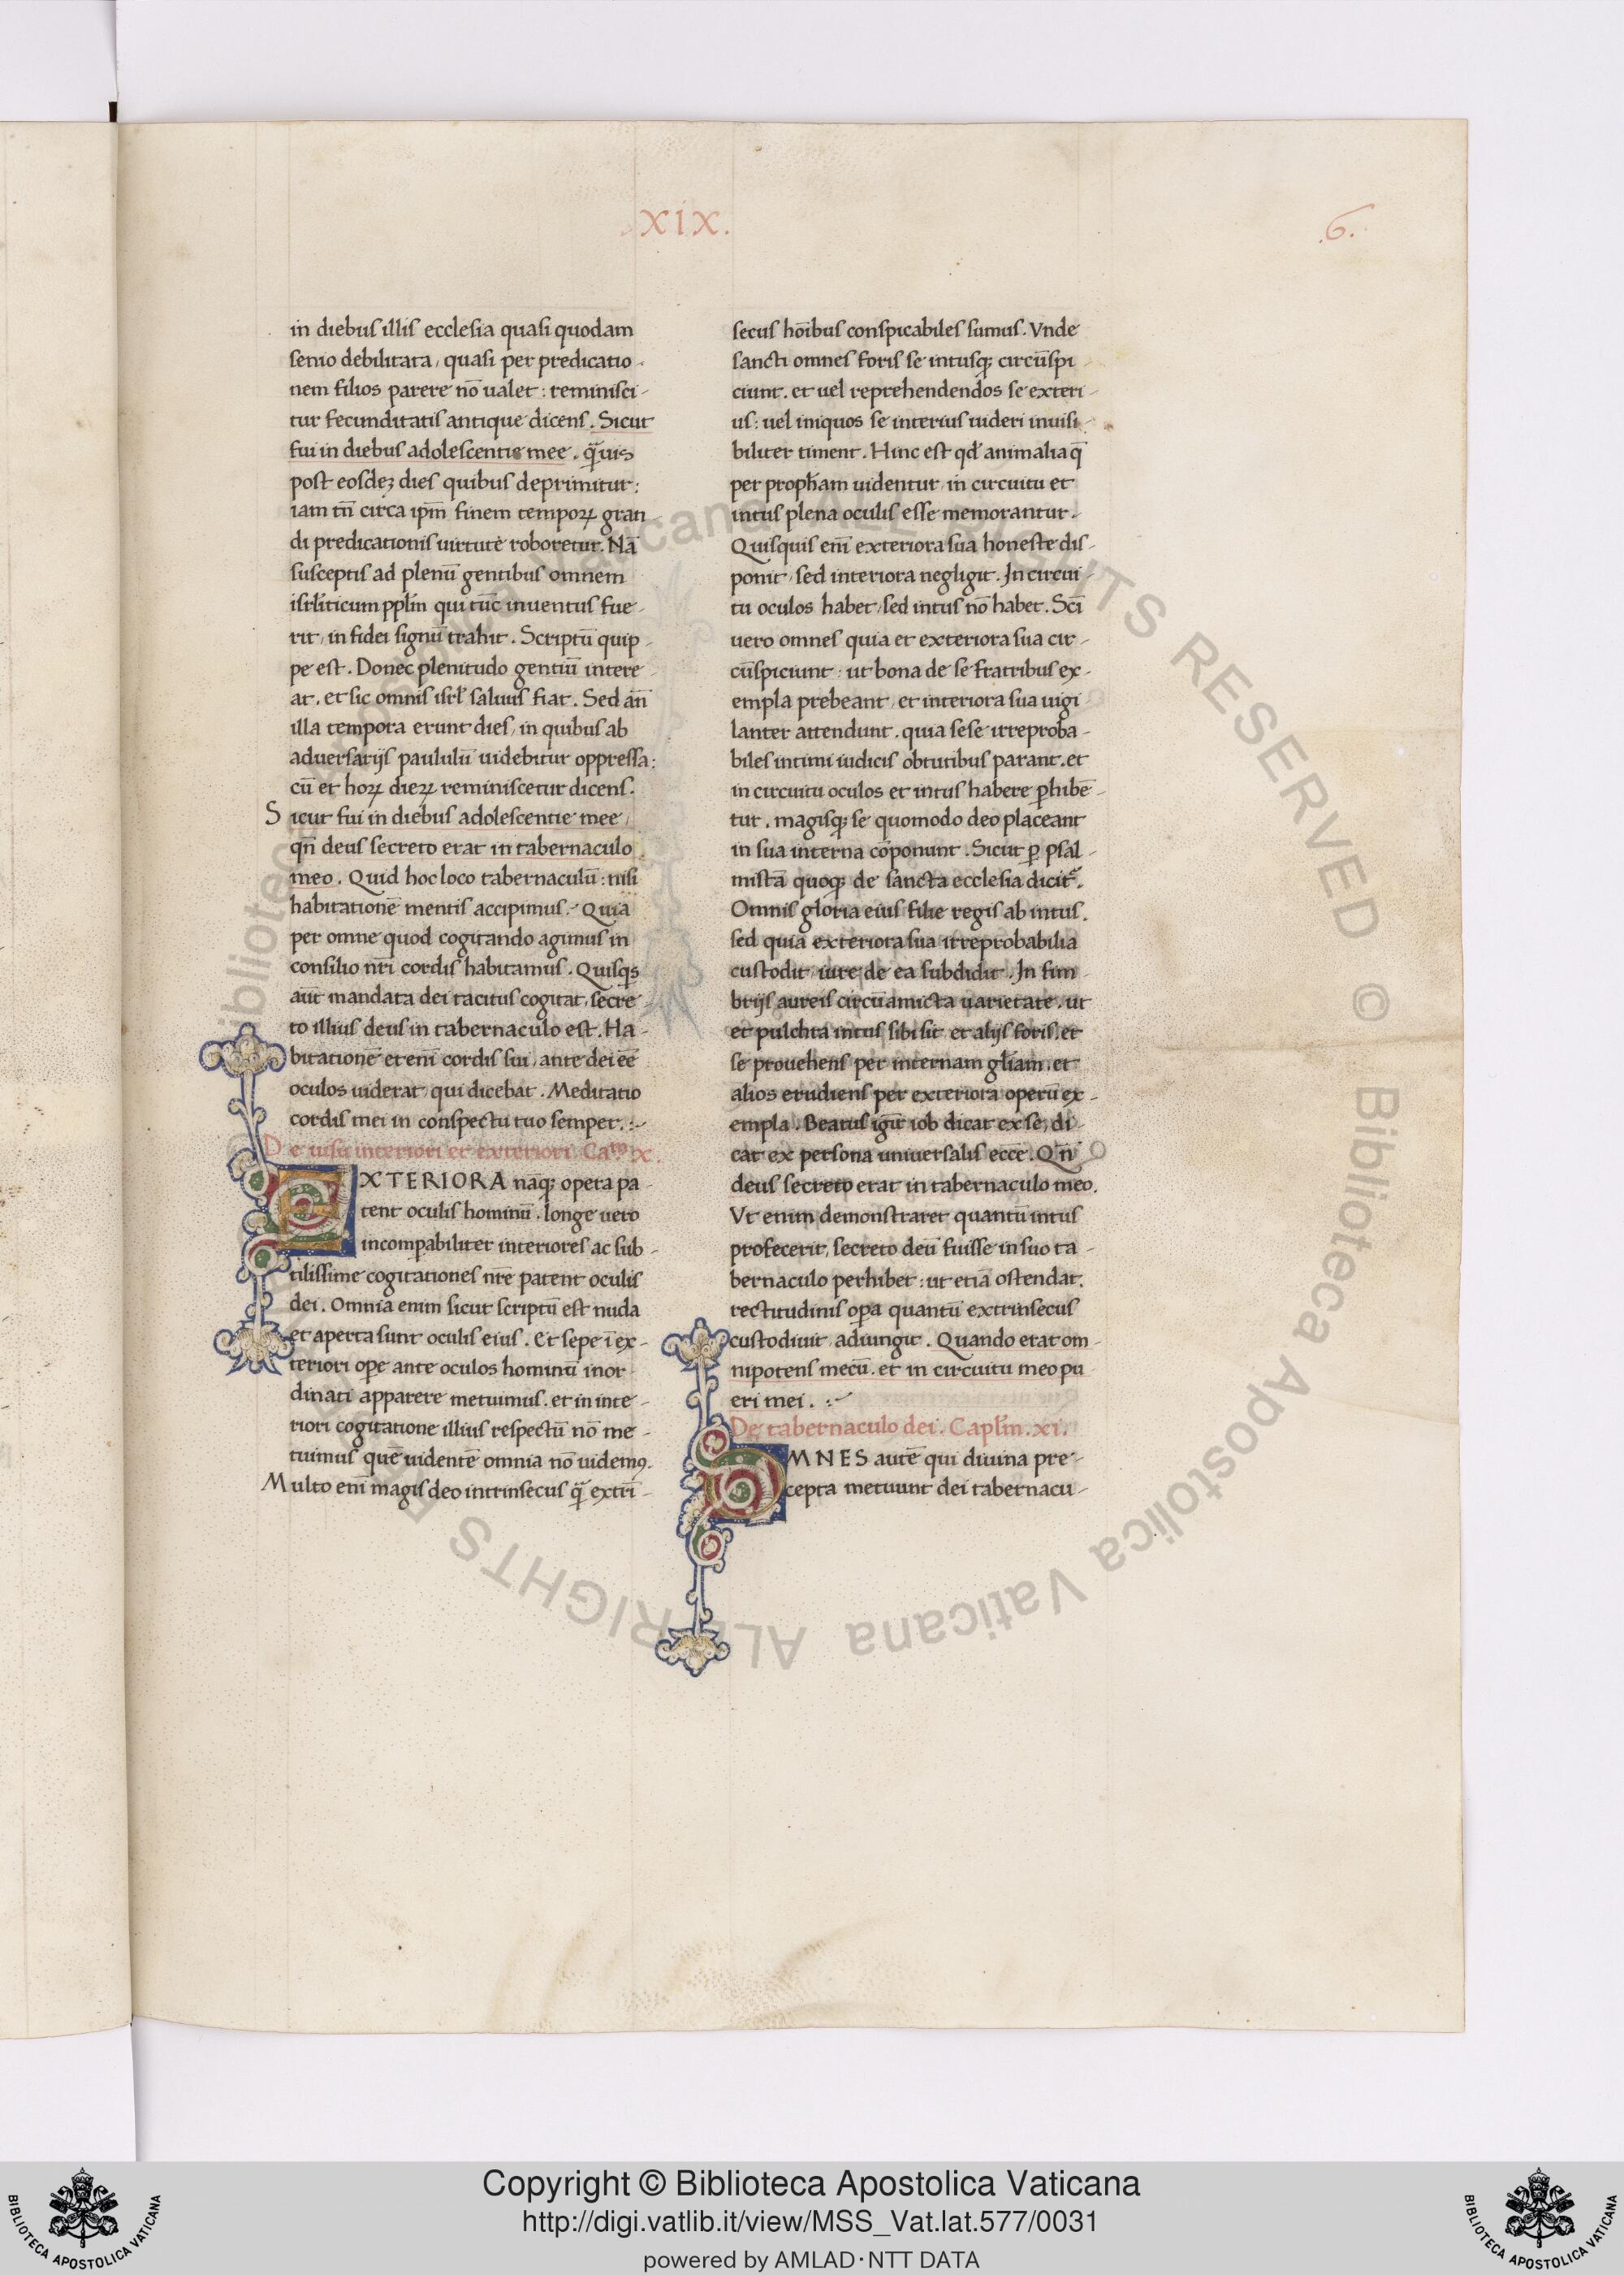 xix.
.6.
in diebus illis ecclesia quasi quodam
senio debilitata, quasi per predicatio-
nem filios parere nō ualet: reminisci-
tur fecunditatis antique dicens. Sicut
fui in diebus adolescentie mee. q̄uis
post eosdeꝫ dies quibus deprimitur:
iam tn̄ circa ipm̄ finem tempoꝝ gran-
di predicationis uirtute roboretur. Nā
susceptis ad plenū gentibus omnem
isrl̄iticum ppl̄m qui tūc inuentus fue-
rit, in fidei signū trahit. Scriptū quip-
pe est. Donec plenitudo gentiū intere-
at. et sic omnis isrl̄ saluus fiat. Sed an̄
illa tempora erunt dies, in quibus ab
aduersarijs paululū uidebitur oppressa:
cū et hoꝝ dieꝝ reminiscetur dicens.
Sicut fui in diebus adolescentie mee,
qn̄ deus secreto erat in tabernaculo
meo. Quid hoc loco tabernaculū: nisi
habitationē mentis accipimus. Quia
per omne quod cogitando agimus in
consilio nr̄i cordis habitamus. Quisqs
aūt mandata dei tacitus cogitat, secre-
to illius deus in tabernaculo est. Ha-
bitationē etenī cordis sui, ante dei eē
oculos uiderat, qui dicebat. Meditatio
cordis mei in conspectu tuo semper.:~
De uisu interiori et exteriori. Caᵐ. x.
EXTERIORA naq̄ꝫ opera pa-
tent oculis hominū. longe uero
incompabiliter interiores ac sub-
tilissime cogitationes nr̄e patent oculis
dei. Omnia enim sicut scriptū est nuda
et aperta sunt oculis eius. Et sepe ī ex-
teriori ope ante oculos hominū inor-
dinati apparere metuimus. et in inte-
riori cogitatione illius respectū nō me-
tuimus quē uidentē omnia nō uidemꝰ.
Multo enī magis deo intrinsecus q̄ extri-
secus hoībus conspicabiles sumus. Vnde
sancti omnes foris se intusqꝫ circūspi-
ciunt. et uel reprehendendos se exteri-
us: uel iniquos se interius uideri inuisi-
biliter timent. Hinc est qd̄ animalia q̄
per proph̄am uidentur, in circuitu et
intus plena oculis esse memorantur.
Quisquis enī exteriora sua honeste dis-
ponit, sed interiora negligit. In circui-
tu oculos habet, sed intus nō habet. Scī
uero omnes quia et exteriora sua cir-
cūspiciunt: ut bona de se fratribus ex-
empla prebeant, et interiora sua uigi-
lanter attendunt. quia sese irreproba-
biles intimi iudicis obtutibus parant. et
in circuitu oculos et intus habere ꝑhibē-
tur. magisqꝫ se quomodo deo placeant
in sua interna cōponunt. Sicut ꝑ psal-
mistā quoqꝫ de sancta ecclesia dicit̄.
Omnis gloria eius filie regis ab intus.
sed quia exteriora sua irreprobabilia
custodit, iure de ea subdidit. In fim-
brijs aureis circūamicta uarietate. ut
et pulchra intus sibi sit et alijs foris. et
se prouehens per internam gl̄iam. et
alios erudiens per exteriora operū ex-
empla. Beatus igit̄ iob dicat ex se, di-
cat ex persona uniuersalis ecce. Qn̄
deus secreto erat in tabernaculo meo.
Vt enim demonstraret quantū intus
profecerit, secreto deū fuisse in suo ta-
bernaculo perhibet: ut etiā ostendat.
rectitudinis oꝑa quantū extrinsecus
custodiuit, adiungit. Quando erat om-
nipotens mecū. et in circuitu meo pu-
eri mei. .:~
De tabernaculo dei. Capl̄m. xi.
OMNES autē qui diuina pre-
cepta metuunt dei tabernacu-
Biblioteca Apostolica Vaticana ALL RIGHTS RESERVED © Biblioteca Apostolica Vaticana ALL RIGHTS RESERVED ©
Copyright © Biblioteca Apostolica Vaticana
http://digi.vatlib.it/view/MSS_Vat.lat.577/0031
powered by AMLAD·NTT DATA
BIBLIOTECA APOSTOLICA VATICANA
BIBLIOTECA APOSTOLICA VATICANA